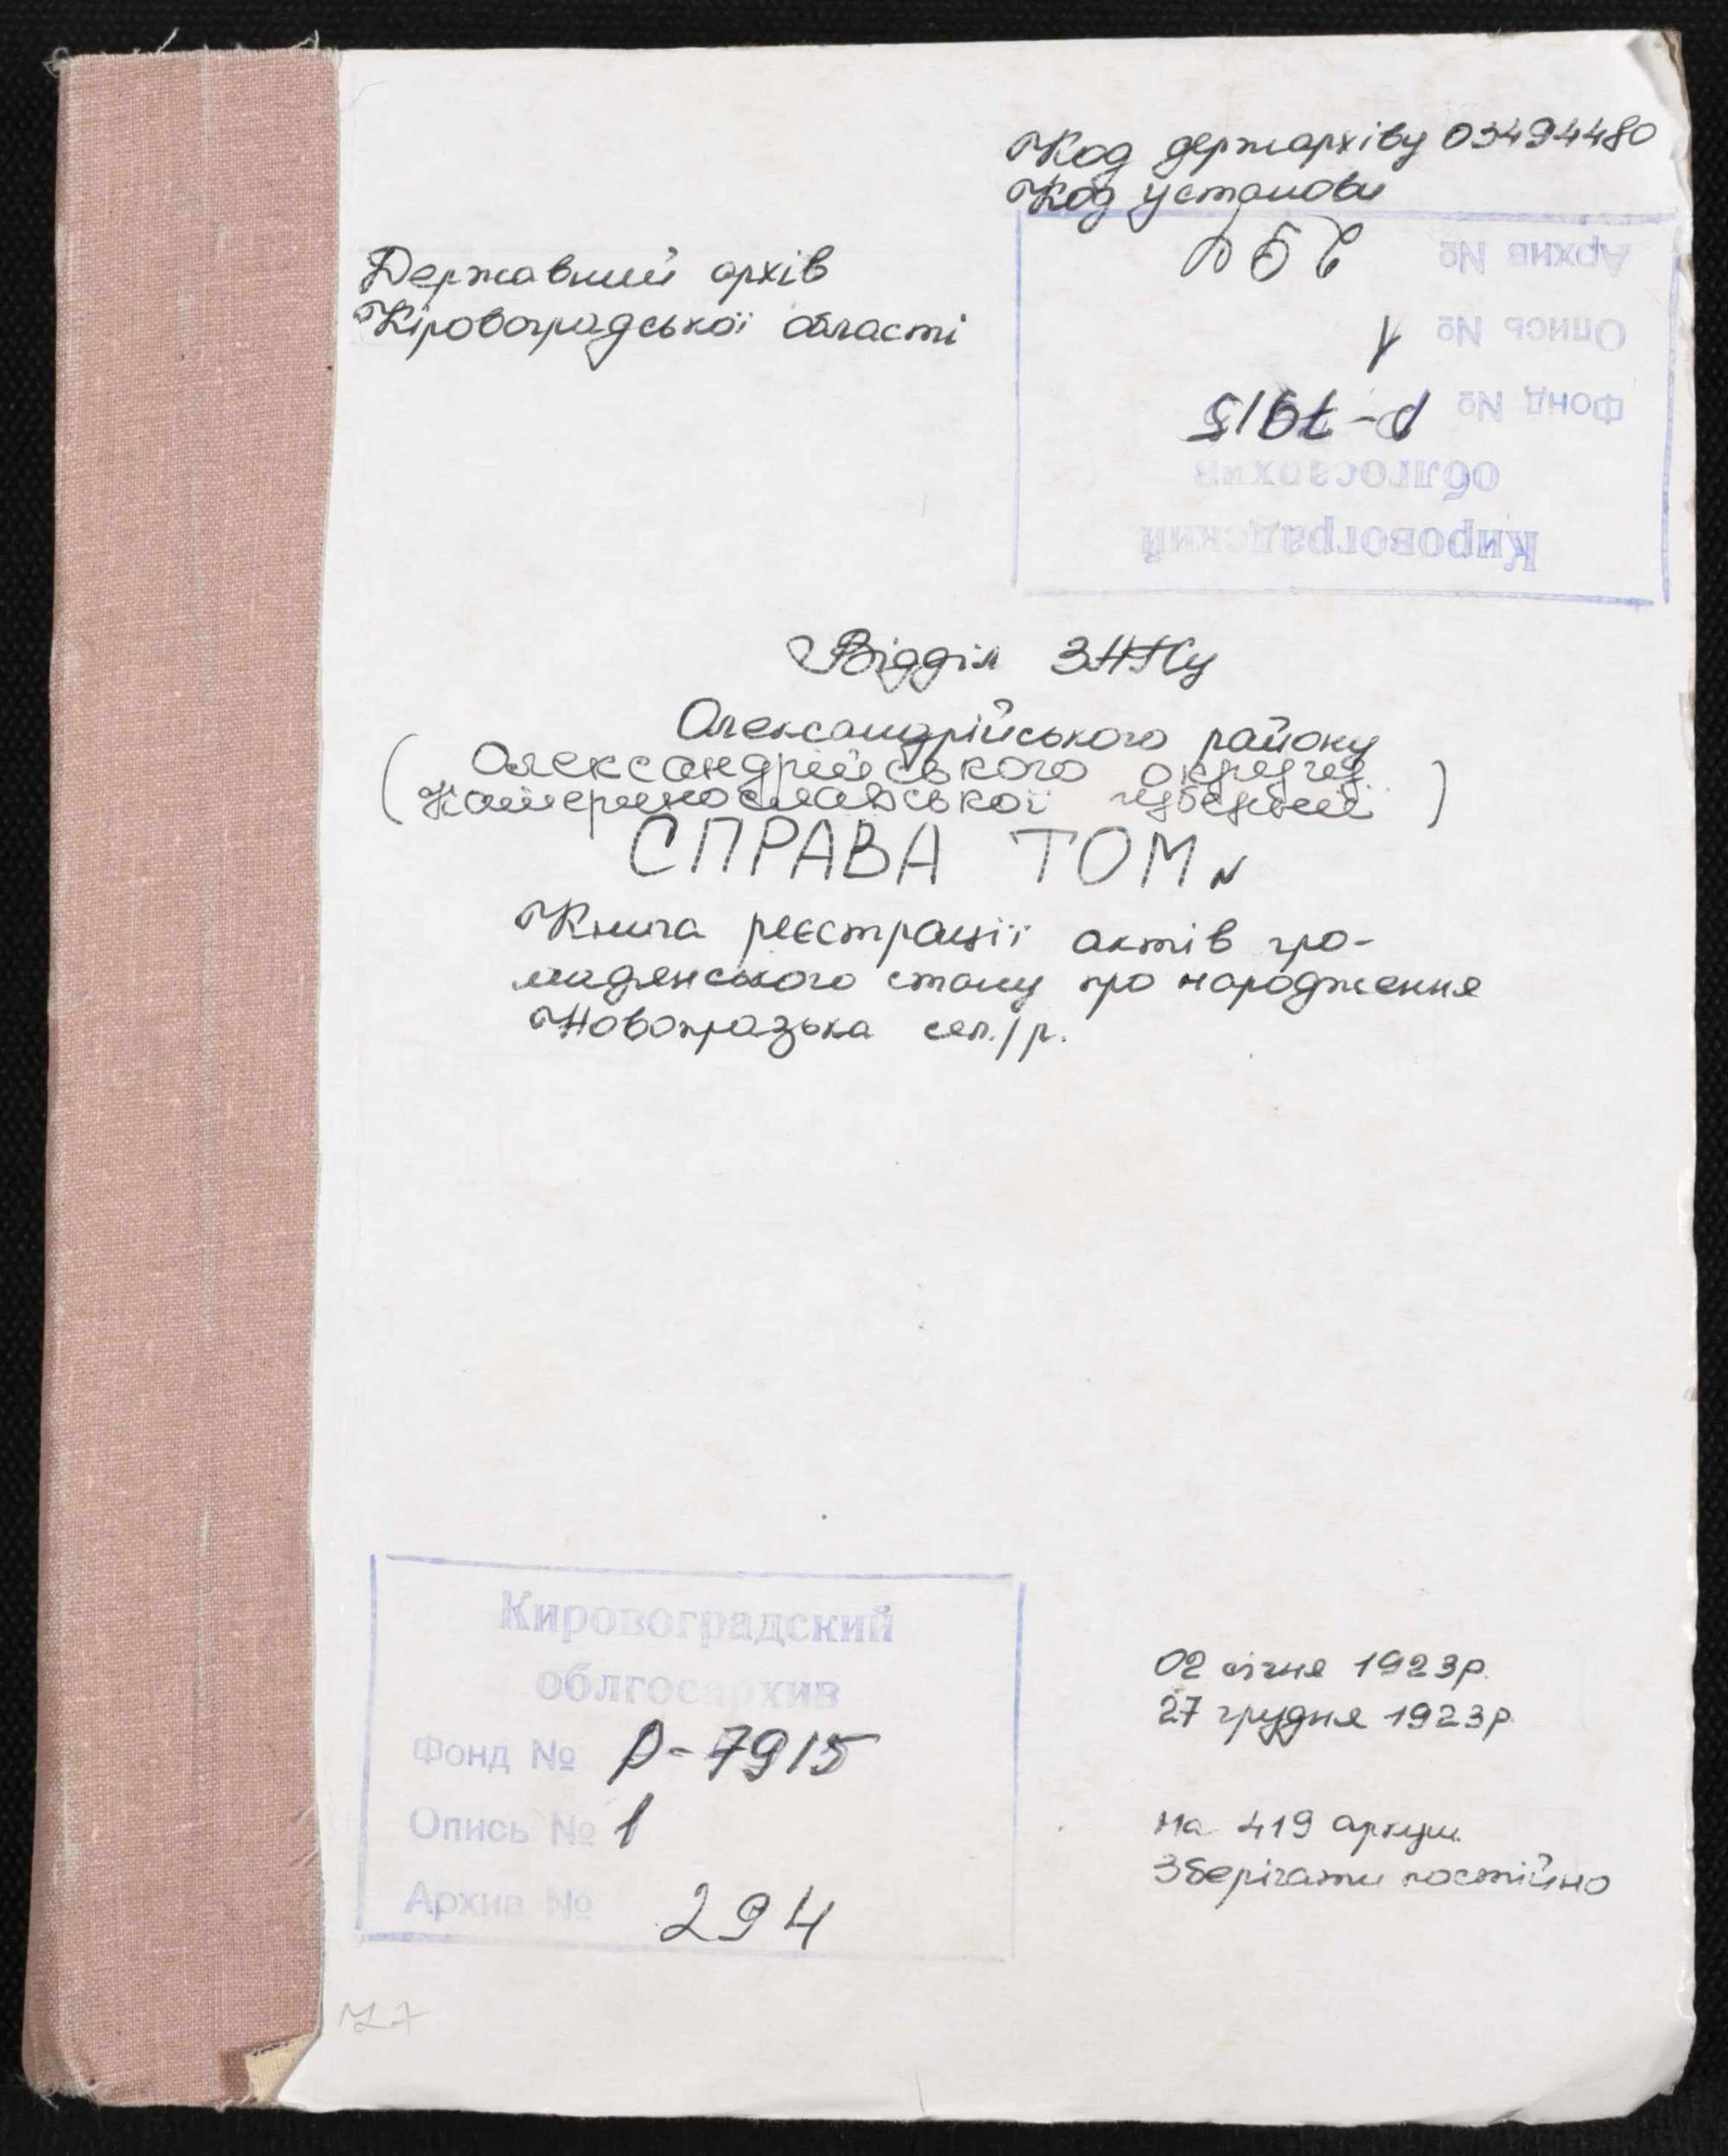 Код держархіву 03494480
Код установи
Державний архів
Кіровоградської області
Архив №
Опись № 1
Фонд № Р-7915
облгосархив
Кировоградский
Відділ ЗАГСу
Олександрійського району
(Олександрійського округу
Катеринославської губернії)
СПРАВА ТОМ №
Книга реєстрації актів гро-
мадянського стану про народження
Новопразька сел./р.
Кировоградский
облгосархив
Фонд № Р-7915
Опись № 1
Архив № 294
02 січня 1923р.
27 грудня 1923р.
на 419 аркуш.
Зберігати постійно